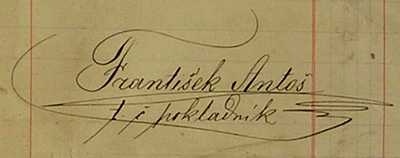 František Antoš
t č pokladník